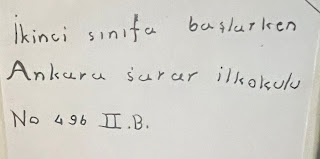 İkinci sınıfa başlarken
Ankara sarar ilkokulu
No 496 II.B.